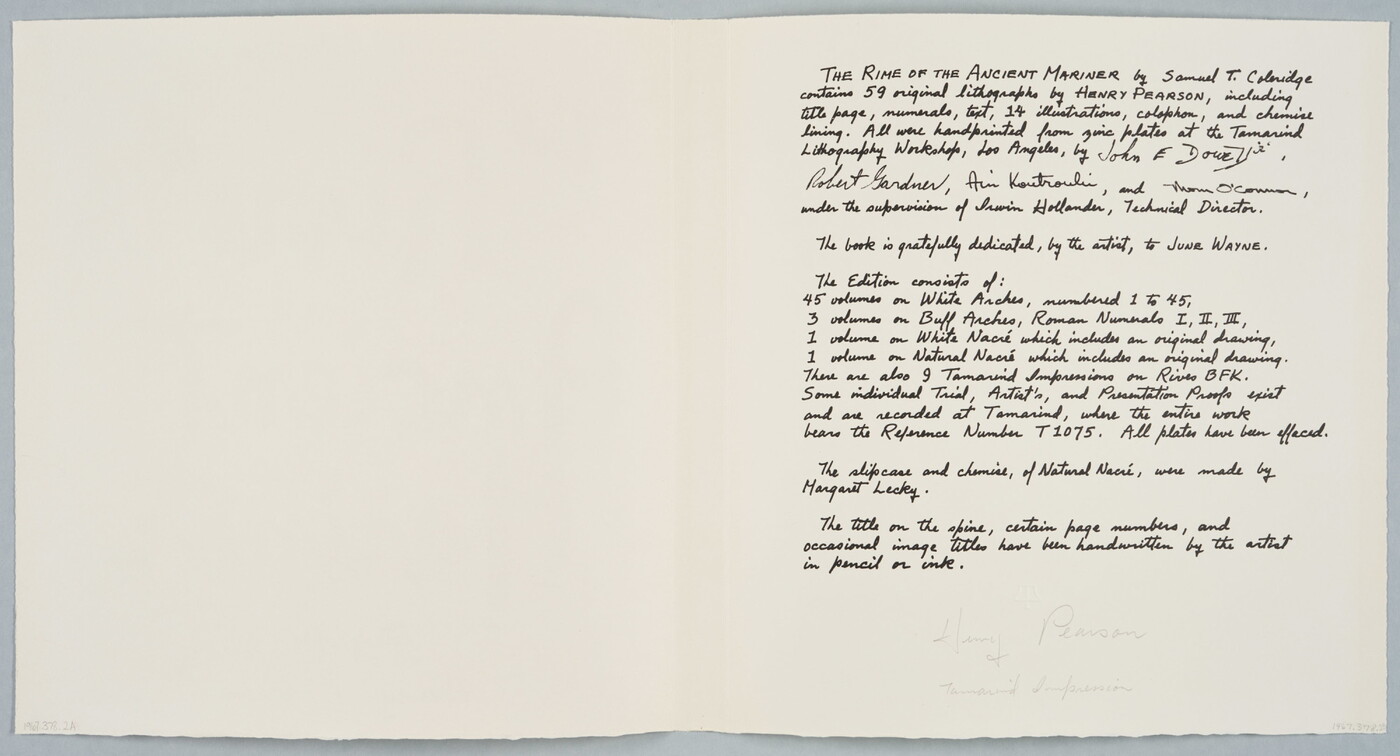 THE RIME OF THE ANCIENT MARINER by Samuel T. Coleridge
contains 59 original lithographs by HENRY PEARSON, including
title page, numerals, text, 14 illustrations, colophon, and chemise
lining. All were handprinted from zinc plates at the Tamarind
Lithography Workshop, Los Angeles, by John E Dowell Jr.,
Robert Gardner, Koutroulis, and Thom O'Connor,
under the supervision of Irwin Hollander, Technical Director.
The book is gratefully dedicated, by the artist, to JUNE WAYNE.
The Edition consists of:
45 volumes on White Arches, numbered 1 to 45,
3 volumes on Buff Arches, Roman Numerals I, II, III,
1 volume on White Nacré which includes an original drawing,
1 volume on Natural Nacré which includes an original drawing.
There are also 9 Tamarind Impressions on Rives BFK.
Some individual Trial, Artist's, and Presentation Proofs exist
and are recorded at Tamarind, where the entire work
bears the Reference Number T 1075. All plates have been effaced.
The slipcase and chemise, of Natural Nacré, were made by
Margaret Lecky.
The title on the spine, certain page numbers, and
occasional image titles have been handwritten by the artist
in pencil or ink.
Henry Pearson
Tamarind Impression